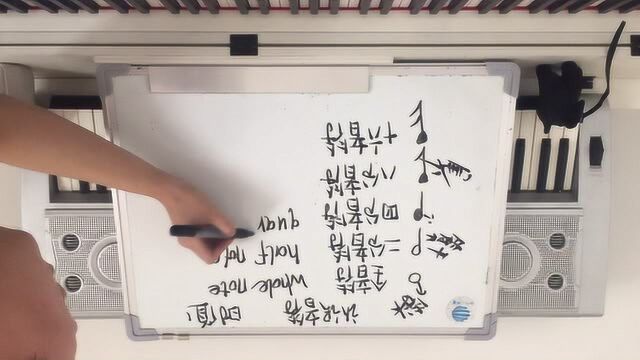 认识音符 时值!
全音符 whole note
二分音符 half note
四分音符 quar
八分音符
十六音符